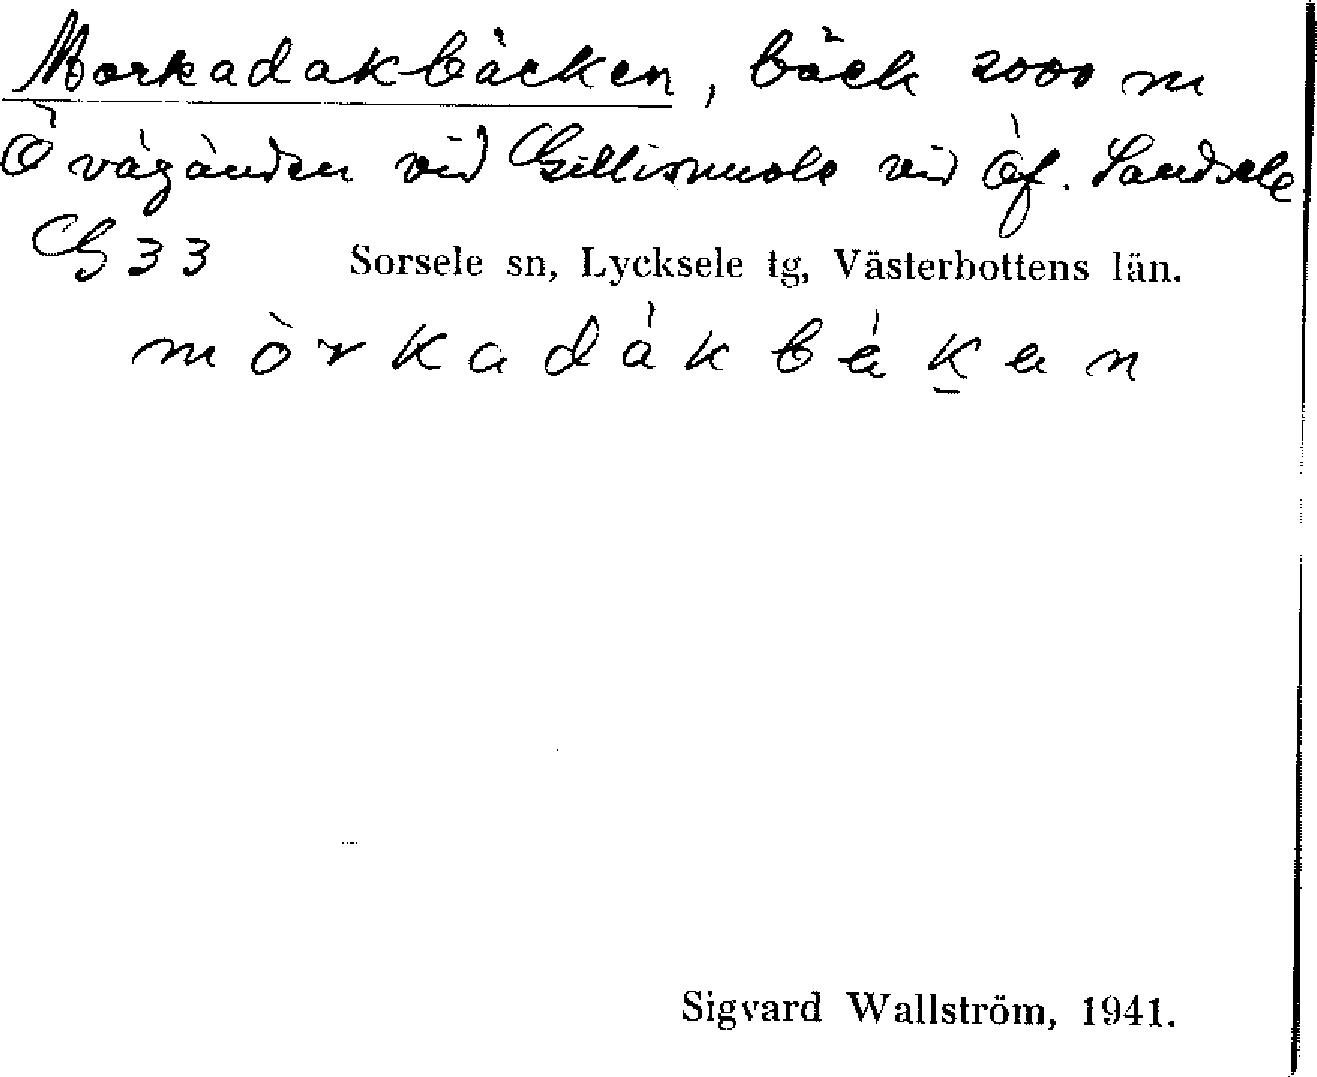 Morkadakbäcken, bäck 2000 m
Ö vägänden vid Gillisnuole vid Öf. Sandsele
G 33 Sorsele sn, Lycksele tg, Västerbottens län.
mòrkadákbéken
Sigvard Wallström, 1941.